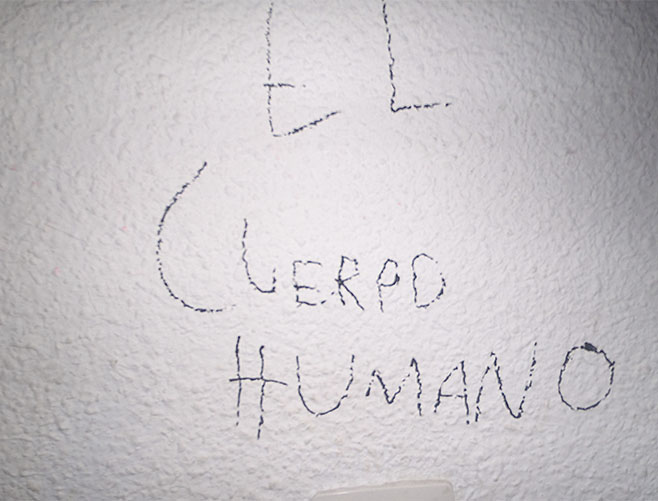 EL
CUERPO
HUMANO